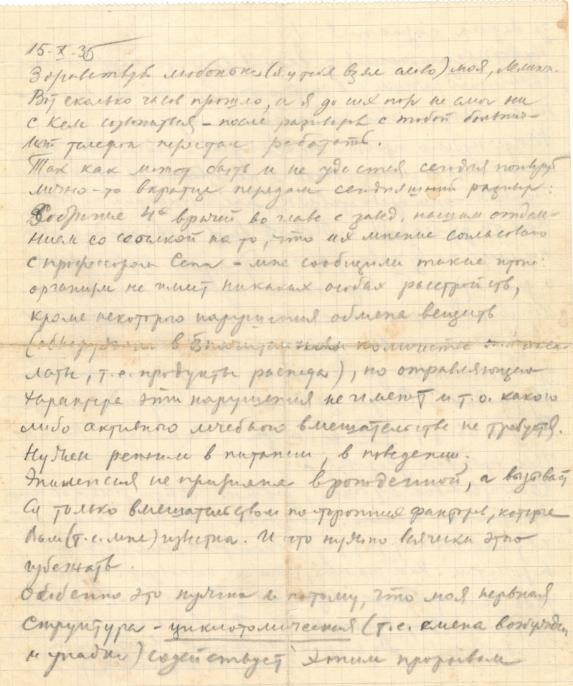 15-X-35
Здравствуй любонька (я у тебя взял слово) моя,
Вот сколько часов прошло, а я до сих пор не смог ни
с кем созвониться - после разговора с тобой больнич-
ный телефон перестал работать.
Так как может быть и не удастся сегодня
лично - то вкратце передам сегодняшний разговор:
Собрание 4х врачей во главе с завед. нашим отделе-
нием со ссылкой на то, что их мнение согласовано
с профессором Сепп - мне сообщили такие
организм не имеет никаких особых расстройств,
кроме некоторого нарушения обмена веществ
(обнаружены в количестве
латы, т.е. продукты распада), но отравляющего
характера эти нарушения не имеют и т.о. какого
либо активного лечебного вмешательства не требуется.
Нужен режим в питании, в поведении.
Эпилепсия не признана врожденной, а вызывает
ся только вмешательством посторонних факторов, которые
Вам (т.е. мне) известны. И что нужно всячески этого
избежать.
Особенно это нужно и потому, что моя нервная
структура - циклотомическая (т.е. смена возбужден
и упадка) содействует этим прорывам